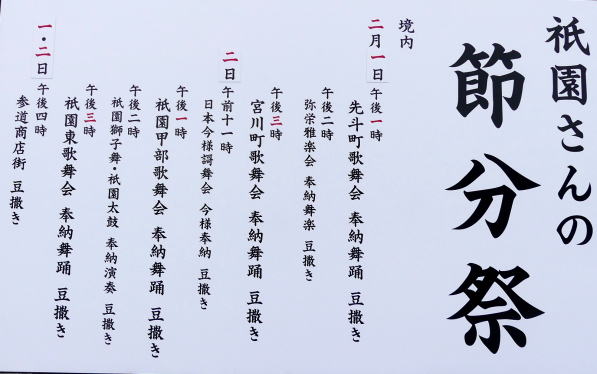 祇園さんの
節分祭
境内
二月一日 午後一時
先斗町歌舞会 奉納舞踊 豆撒き
午後二時
弥栄雅楽会 奉納舞楽 豆撒き
午後三時
宮川町歌舞会 奉納舞踊 豆撒き
二日 午前十一時
日本今様謌舞会 今様奉納 豆撒き
午後一時
祇園甲部歌舞会 奉納舞踊 豆撒き
午後二時
祇園獅子舞・祇園太鼓 奉納演奏 豆撒き
午後三時
祇園東歌舞会 奉納舞踊 豆撒き
一・二日 午後四時
参道商店街 豆撒き